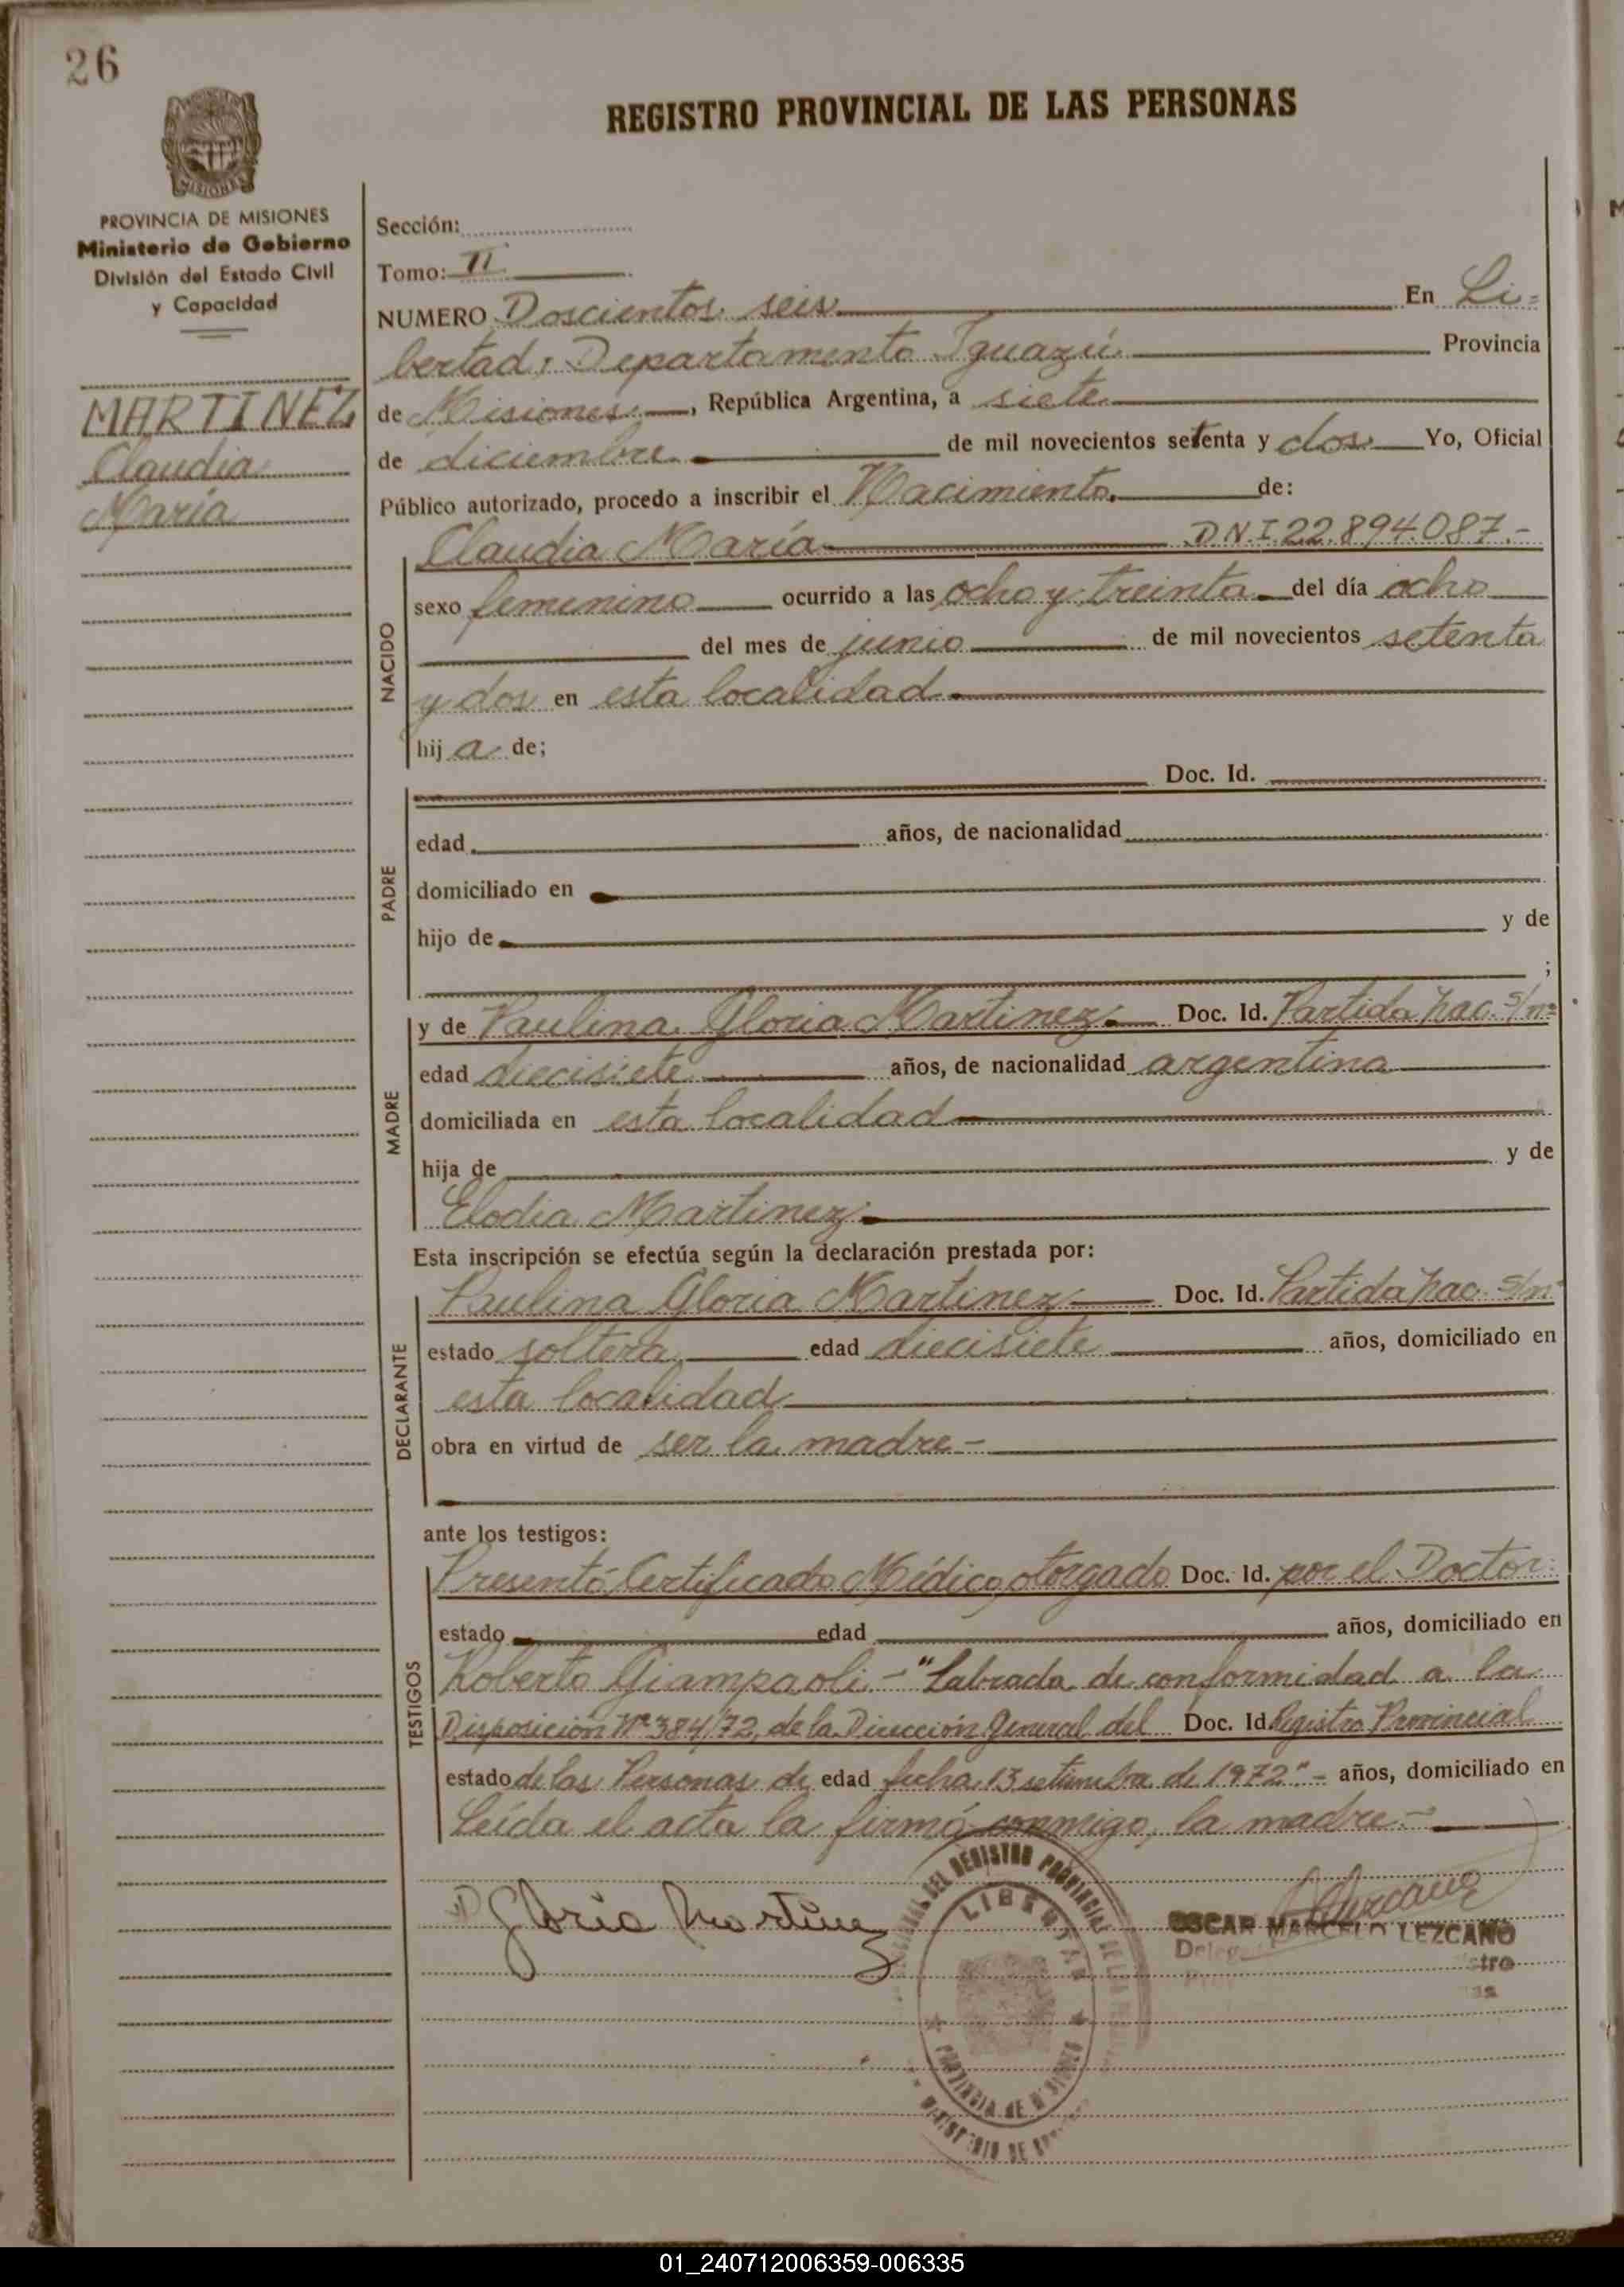 26
REGISTRO PROVINCIAL DE LAS PERSONAS
MISIONES
PROVINCIA DE MISIONES
Ministerio de Gobierno
División del Estado Civil
y Capacidad
MARTINEZ
Claudia
María
Sección:
Tomo: II
NUMERO Doscientos seis En Li=
bertad, Departamento Iguazú Provincia
de Misiones, República Argentina, a siete
de diciembre de mil novecientos setenta y dos Yo, Oficial
Público autorizado, procedo a inscribir el Nacimiento de:
NACIDO
Claudia María D.N.I. 22.894.087.-
sexo femenino ocurrido a las ocho y treinta del día ocho
del mes de junio de mil novecientos setenta
y dos en esta localidad
hija de;
PADRE
Doc. Id.
edad años, de nacionalidad
domiciliado en
hijo de y de
;
MADRE
y de Paulina Gloria Martinez Doc. Id. Partida nac. s/nº
edad diecisiete años, de nacionalidad argentina
domiciliada en esta localidad
hija de y de
Elodia Martinez
Esta inscripción se efectúa según la declaración prestada por:
DECLARANTE
Paulina Gloria Martinez Doc. Id. Partida nac. s/nº
estado soltera edad diecisiete años, domiciliado en
esta localidad
obra en virtud de ser la madre-
ante los testigos:
TESTIGOS
Presentó Certificado Médico, otorgado Doc. Id. por el Doctor
estado edad años, domiciliado en
Roberto Giampaoli.-"Labrada de conformidad a la
Disposición Nº 384/72, de la Dirección General del Doc. Id. Registro Provincial
estado de las Personas de edad fecha 13 setiembre de 1972"- años, domiciliado en
Leída el acta la firmó conmigo, la madre.-
Gloria Martinez
DEL REGISTRO PROVINCIAL DE LAS
LIBERTAD
PROVINCIA DE MISIONES
MINISTERIO DE
OSCAR MARCELO LEZCANO
01_240712006359-006335